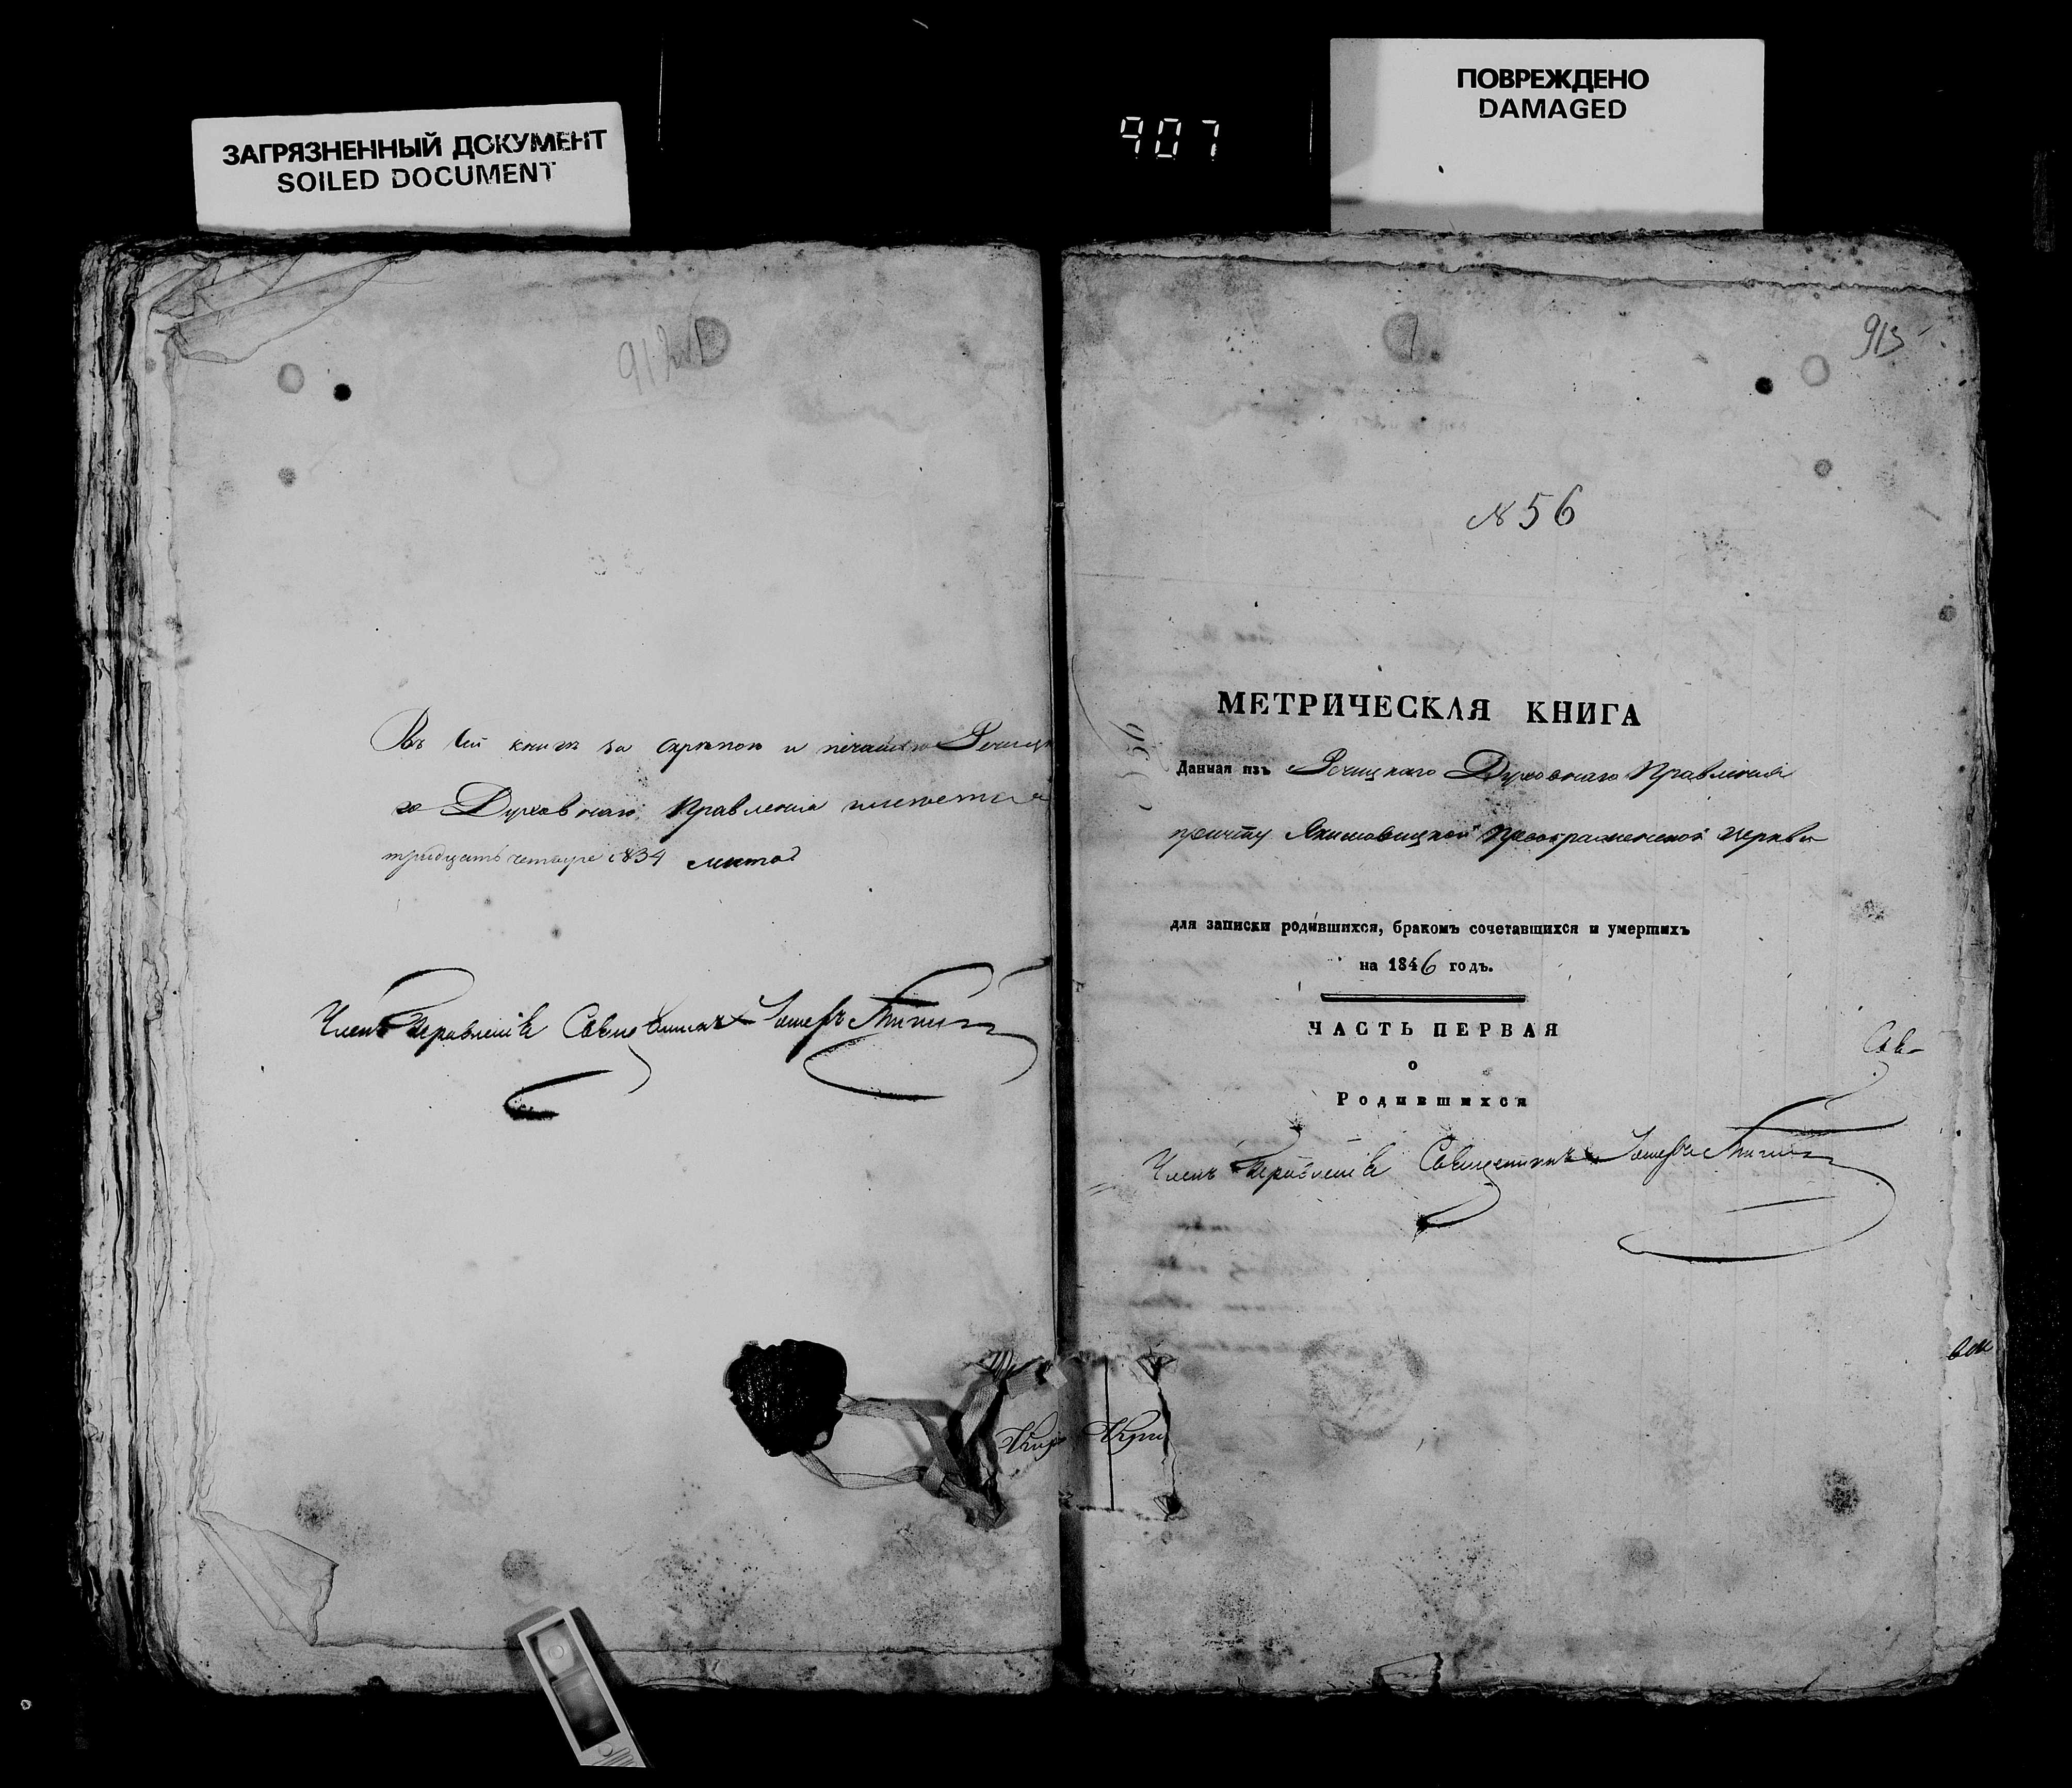 ЗАГРЯЗНЕННЫЙ ДОКУМЕНТ
SOILED DOCUMENT
907
ПОВРЕЖДЕНО
DAMAGED
912
Въ сей книгѣ за скрѣпою и печатью Речицка
го Духовнаго Правленія
тридцать четыре №34 листа
Членъ Правленія Священникъ
913
№56
МЕТРИЧЕСКАЯ КНИГА
Данная изъ Речицкаго Духовнаго Правленія
причту Якимовицкой Преображенской церкви
для записки родившихся, бракомъ сочетавшихся и умершихъ
на 1846 годъ.
ЧАСТЬ ПЕРВАЯ
о
Родившихся
Членъ Правленія Священникъ